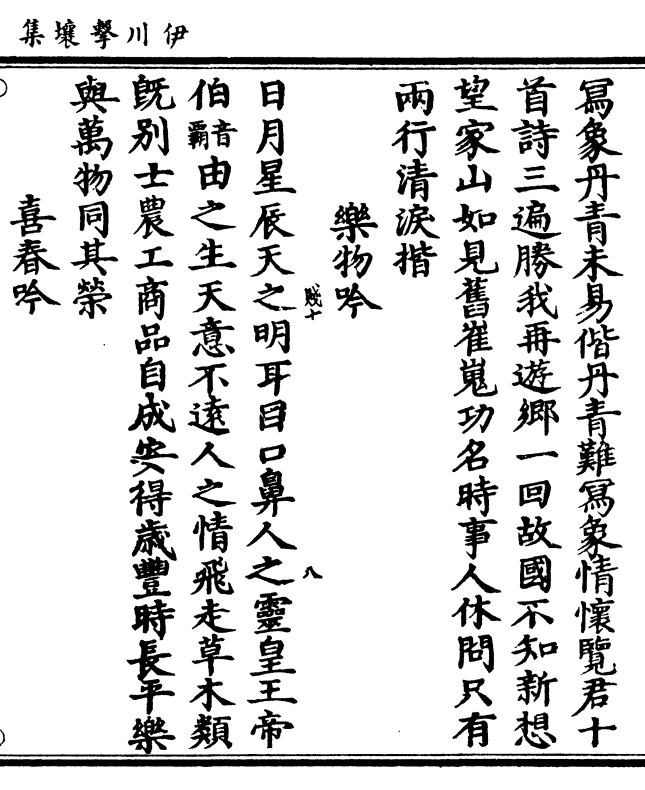 伊川擊壤集
冩象丹青未易偕丹青難冩象情懷覽君十
首詩三遍勝我再遊鄉一回故國不知新想
望家山如見舊崔嵬功名時事人休問只有
兩行清淚揩
樂物吟
十
八
日月星辰天之明耳目口鼻人之靈皇王帝
伯音霸由之生天意不遠人之情飛走草木類
旣别士農工商品自成安得歲豐時長平樂
與萬物同其榮
喜春吟